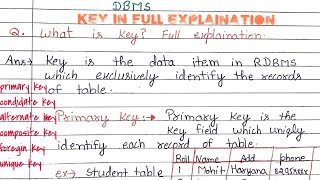 DBMS
KEY IN FULL EXPLAINATION
Q. What is key? Full explaination.
Ans→ Key is the data item in RDBMS
which exclusively identify the records
of table.
primary key
candidate key
alternate key
composite key
foregin key
unique key
Primary Key:→ Primary key is the
key field which uniqly
identify each record of table.
ex→ student table
Roll Name Add phone
1 Mohit Haryana